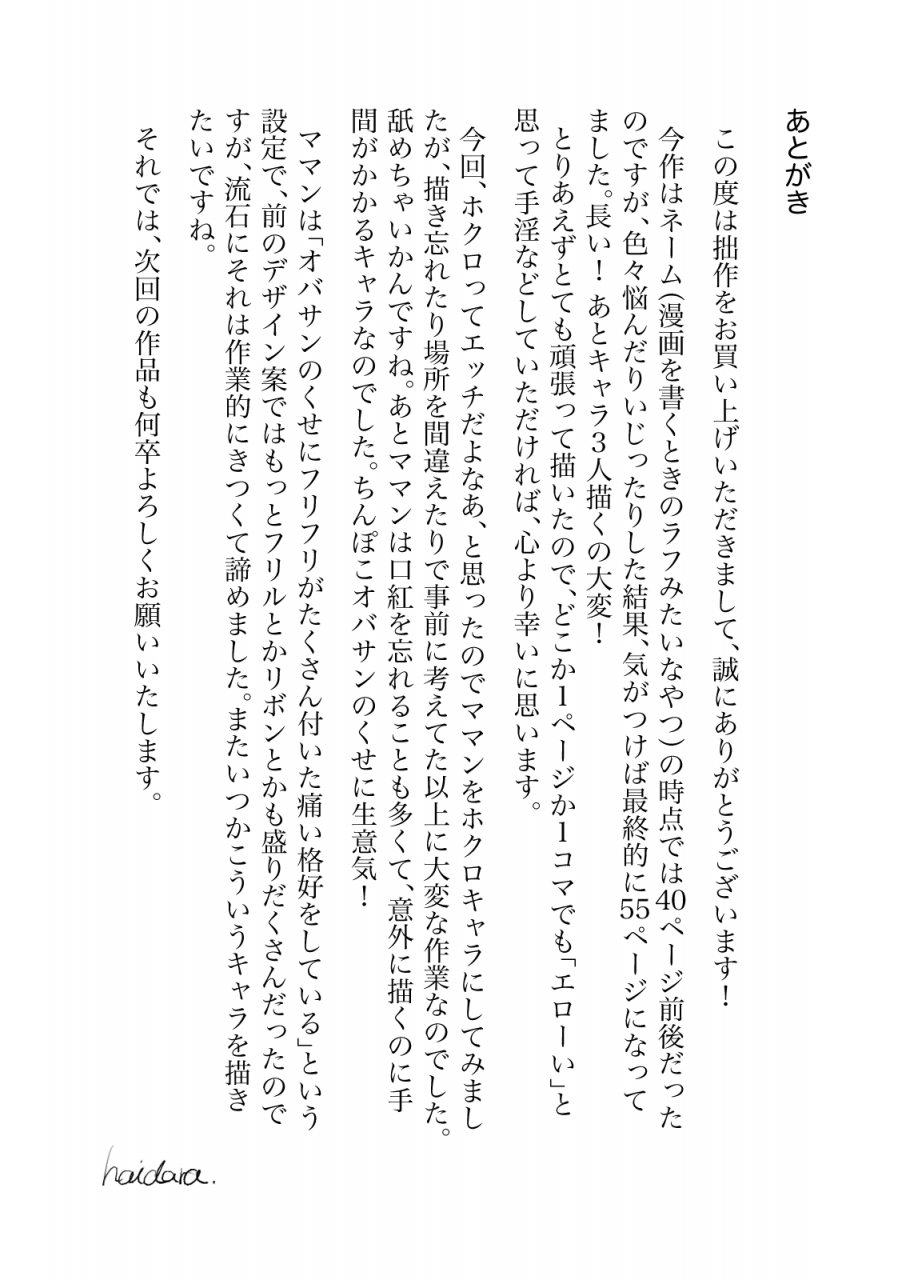 あとがき
この度は拙作をお買い上げいただきまして、誠にありがとうございます！
今作はネーム(漫画を書くときのラフみたいなやつ)の時点では40ページ前後だった
のですが、色々悩んだりいじったりした結果、気がつけば最終的に55ページになって
ました。長い！ あとキャラ３人描くの大変！
とりあえずとても頑張って描いたので、どこか１ページか１コマでも「エローい」と
思って手淫などしていただければ、心より幸いに思います。
今回、ホクロってエッチだよなあ、と思ったのでママンをホクロキャラにしてみまし
たが、描き忘れたり場所を間違えたりで事前に考えてた以上に大変な作業なのでした。
舐めちゃいかんですね。あとママンは口紅を忘れることも多くて、意外に描くのに手
間がかかるキャラなのでした。ちんぽこオバサンのくせに生意気！
ママンは「オバサンのくせにフリフリがたくさん付いた痛い格好をしている」という
設定で、前のデザイン案ではもっとフリルとかリボンとかも盛りだくさんだったので
すが、流石にそれは作業的にきつくて諦めました。またいつかこういうキャラを描き
たいですね。
それでは、次回の作品も何卒よろしくお願いいたします。
haidara.